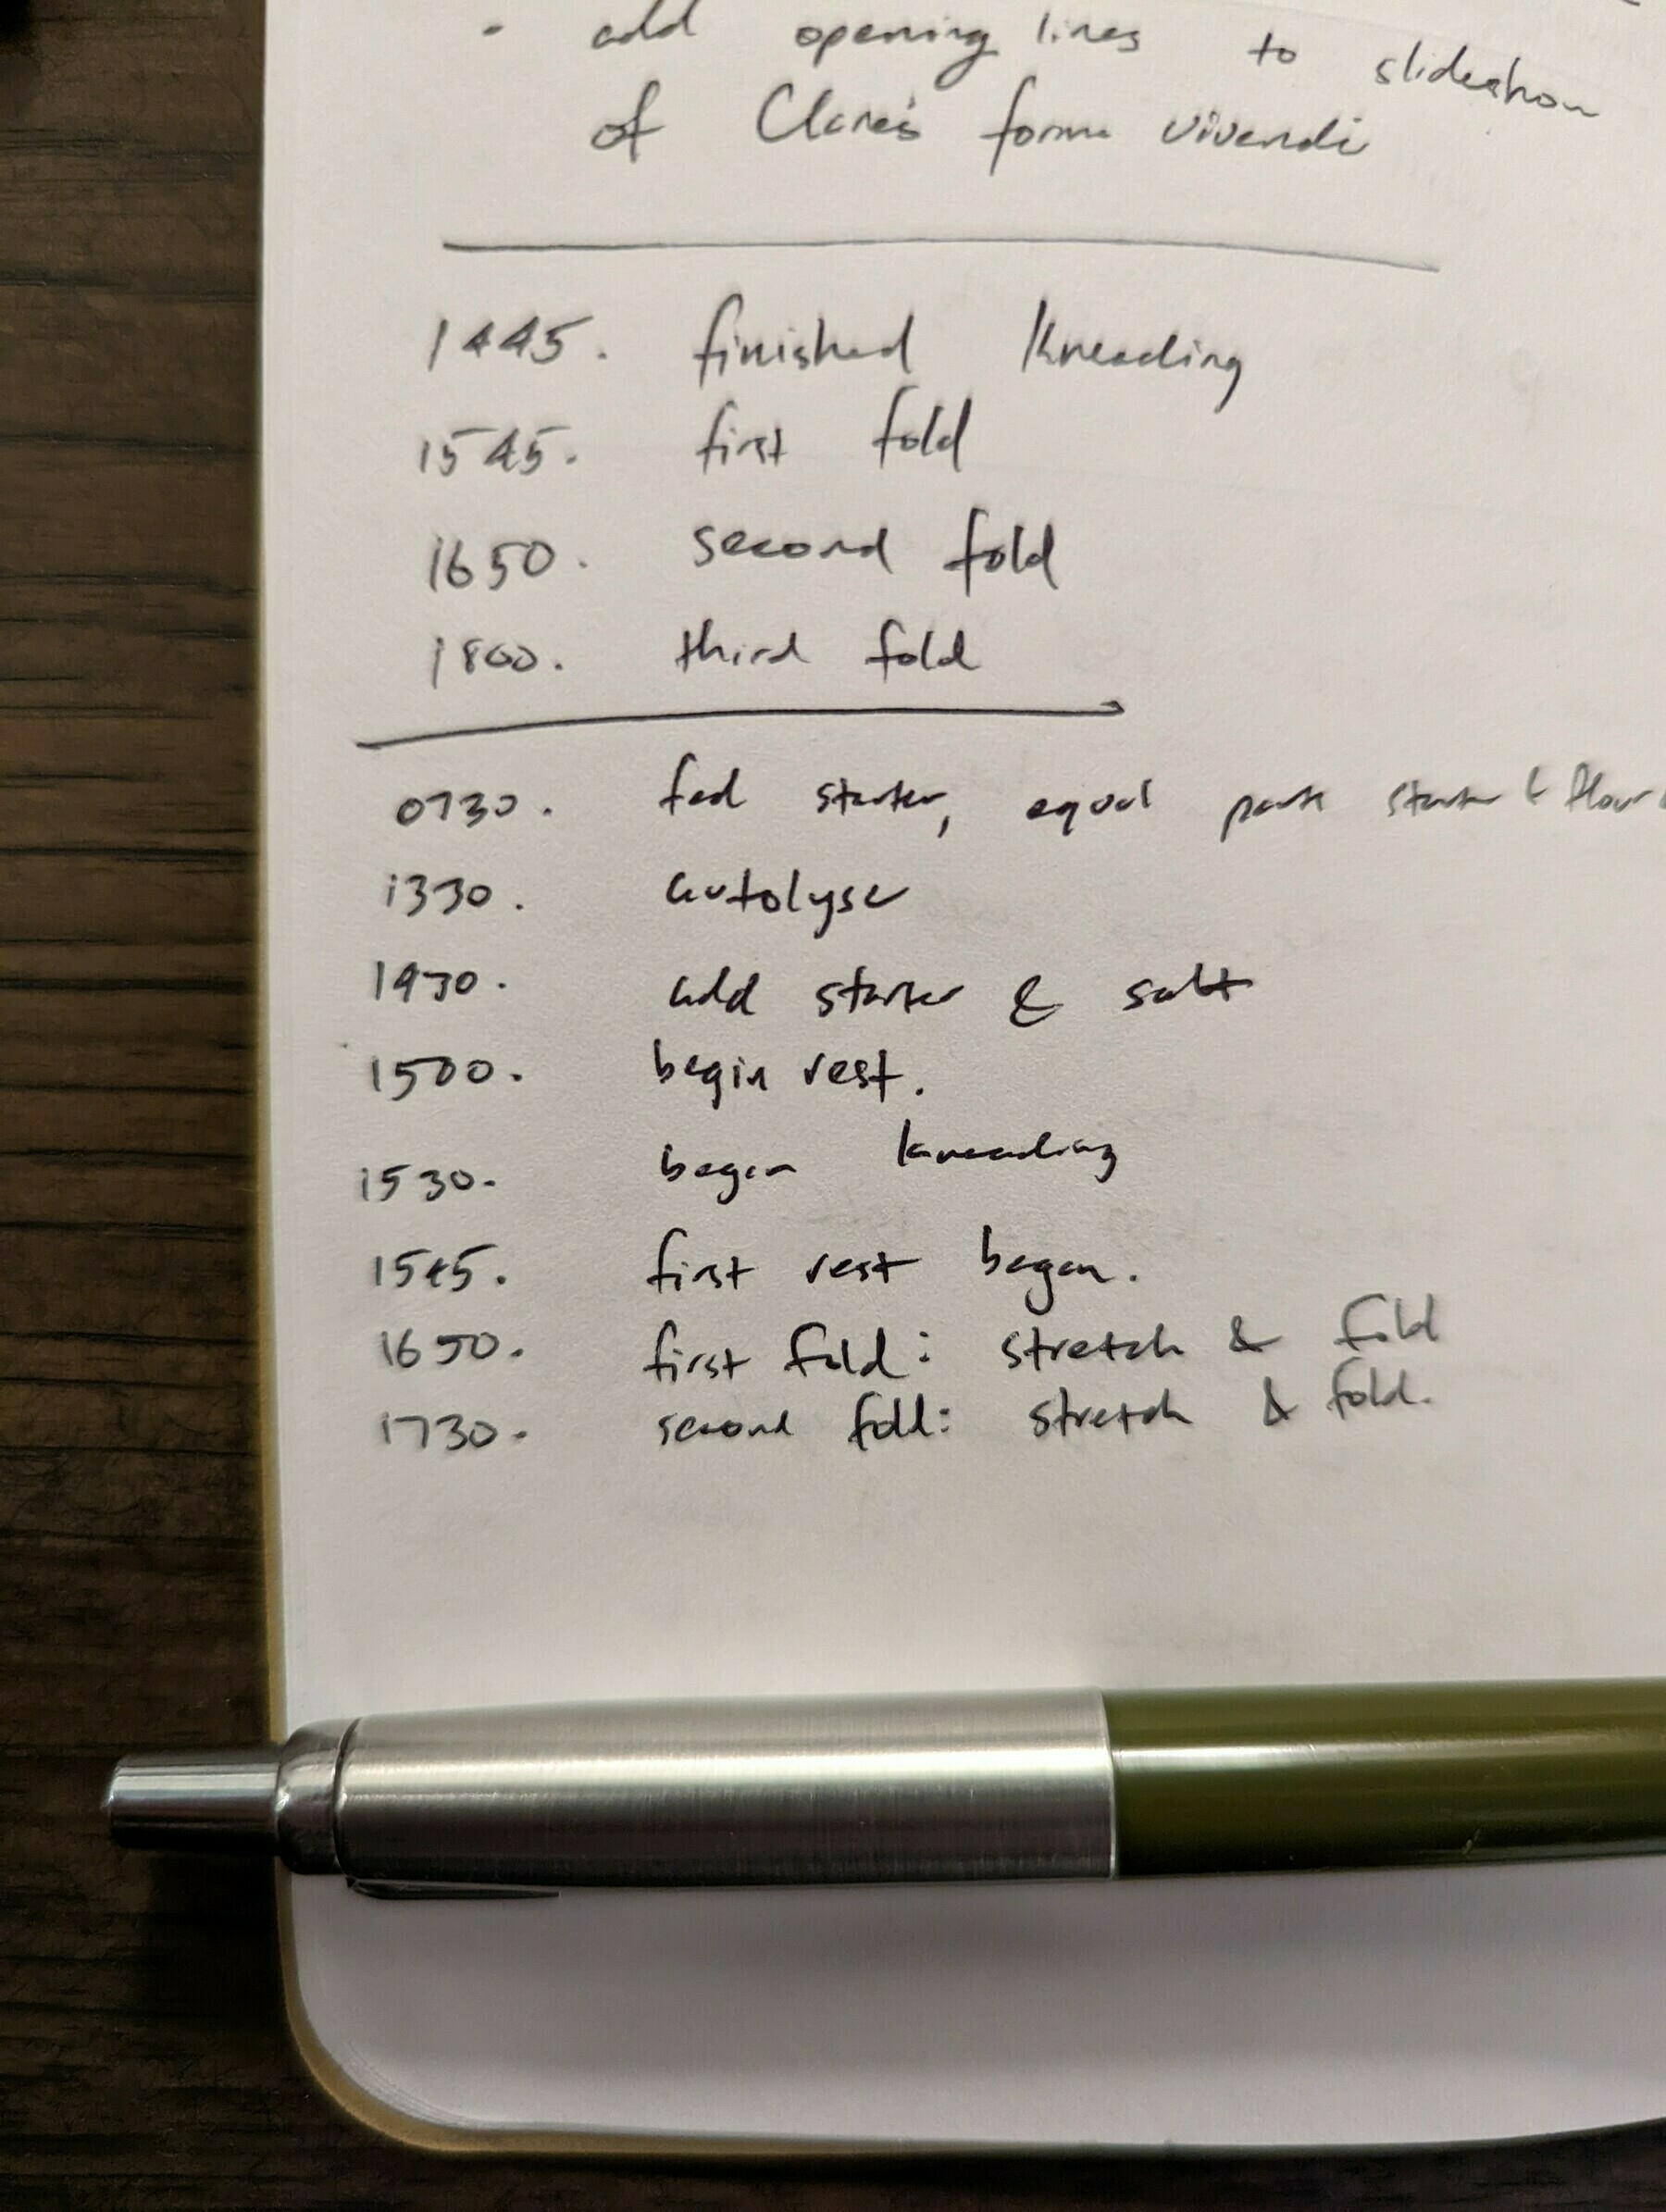 - add opening lines to slideshow
of Clare's forma vivendi
1445. finished kneading
1545. first fold
1650. second fold
1800. third fold
0730. fed starter, equal parts starter & flour
1330. autolyse
1430. add starter & salt
1500. begin rest.
1530. began kneading
1545. first rest began.
1650. first fold: stretch & fold
1730. second fold: stretch & fold.